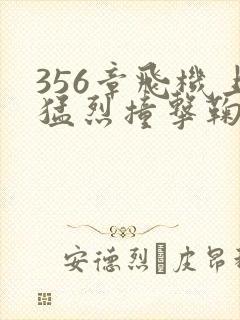 356章飛機上
猛烈撞擊鞠
安德烈 皮昂